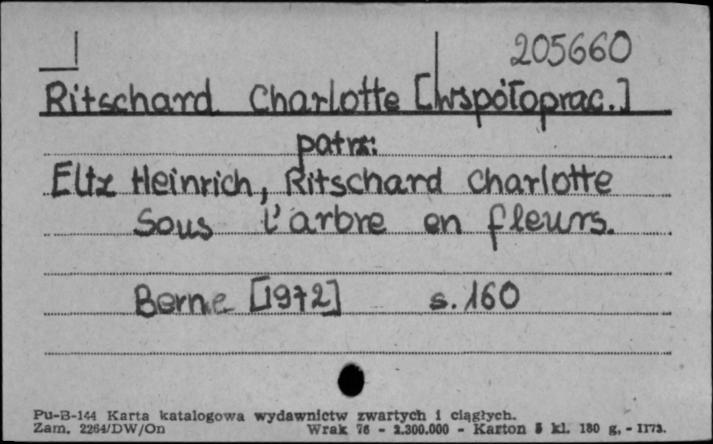 205660
Ritschard Charlotte [współoprac.]
patrz:
Eltz Heinrich, Ritschard Charlotte
Sous l'arbre en fleurs.
Berne [1972] s. 160
Pu-B-144 Karta katalogowa wydawnictw zwartych i ciągłych.
Zam. 2264/DW/On Wrak 76 - 2.300.000 - Karton 5 kl. 180 g, - 1173.